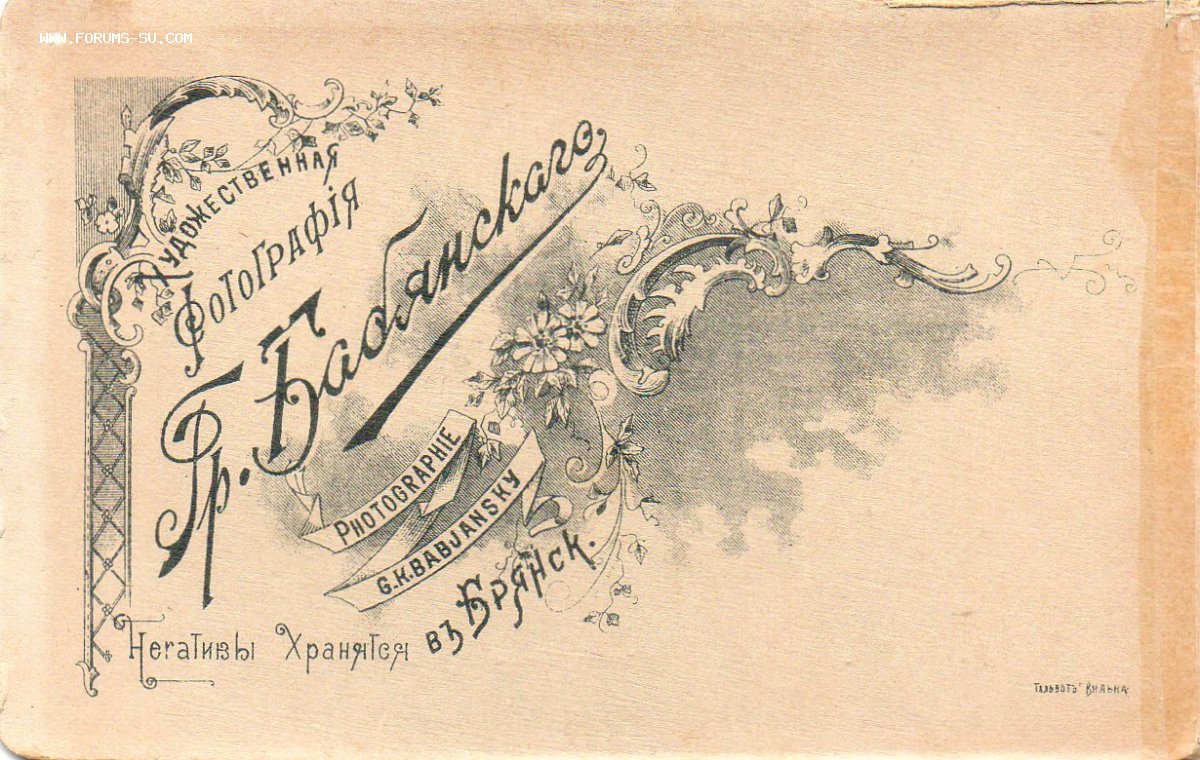 WWW.FORUMS-SU.COM
ХУДОЖЕСТВЕННАЯ
ФОТОГРАФІЯ
Гр. Бабянскаго
PHOTOGRAPHIE
G.K.BABJANSKY
въ Брянск.
Негативы Хранятся
Тальботъ" Вильна